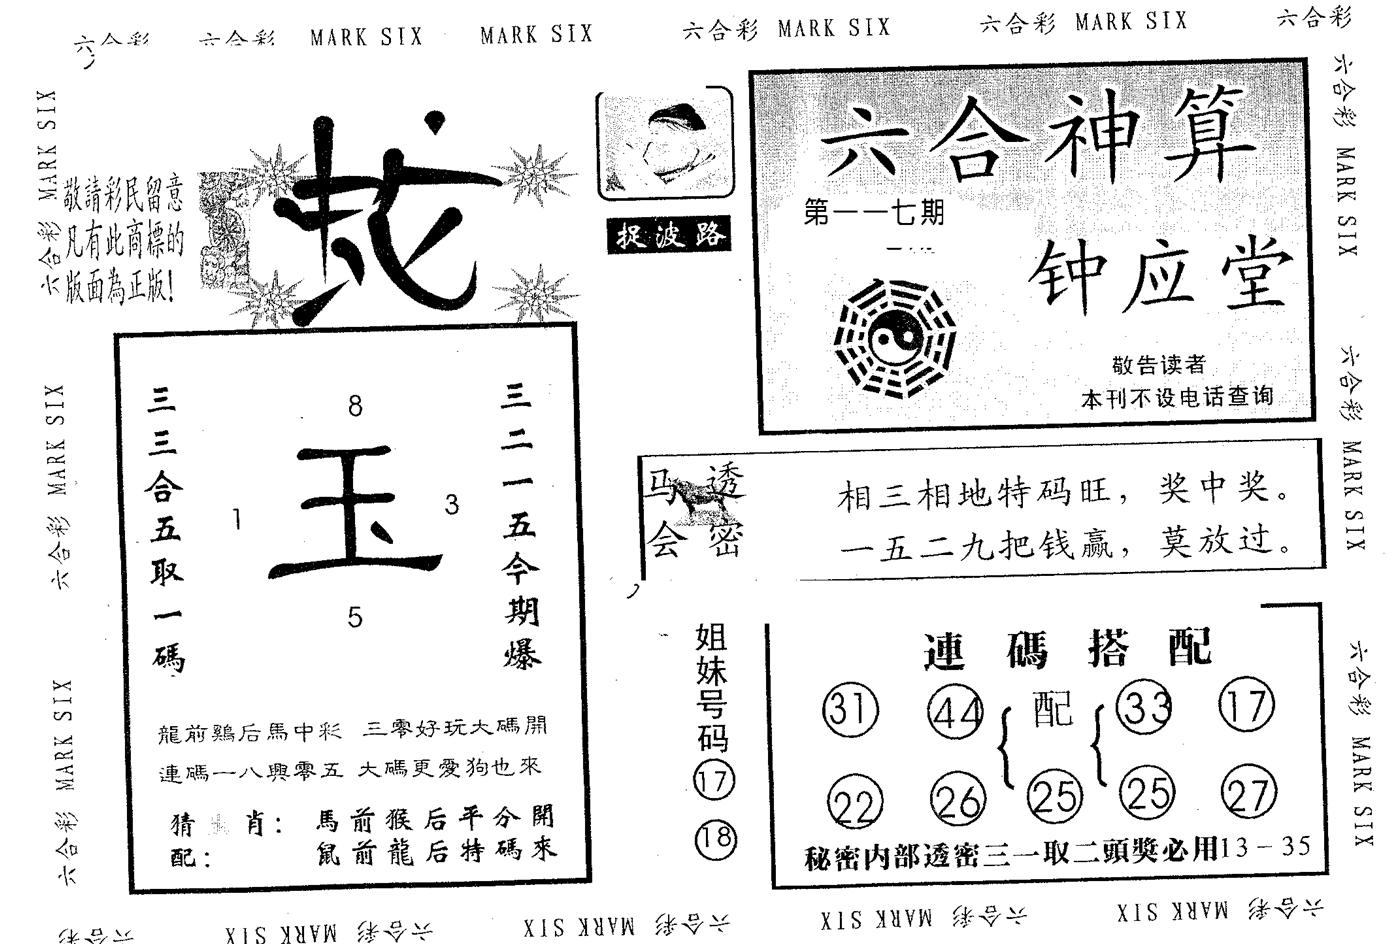 六合彩 六合彩 MARK SIX MARK SIX 六合彩 MARK SIX 六合彩 MARK SIX 六合彩
六合彩 MARK SIX
六合彩 MARK SIX
六合彩 MARK SIX
敬請彩民留意
凡有此商標的
版面為正版!
捉波路
六合神算
第一一七期
钟应堂
敬告读者
本刊不设电话查询
三三合五取一碼
8
1
玉
3
5
三二一五今期爆
龍前鷄后馬中彩 三零好玩大碼開
連碼一八興零五 大碼更愛狗也來
猜 肖: 馬前猴后平分開
配: 鼠前龍后特碼來
马会
透密
相三相地特码旺,奖中奖。
一五二九把钱赢,莫放过。
姐妹号码
17
18
連碼搭配
31 44 配 33 17
22 26 25 25 27
秘密内部透密三一取二頭獎必用13-35
六合彩 MARK SIX
六合彩 MARK SIX
六合彩 MARK SIX
六合彩 MARK SIX 六合彩 MARK SIX 六合彩 MARK SIX 六合彩 MARK SIX 六合彩